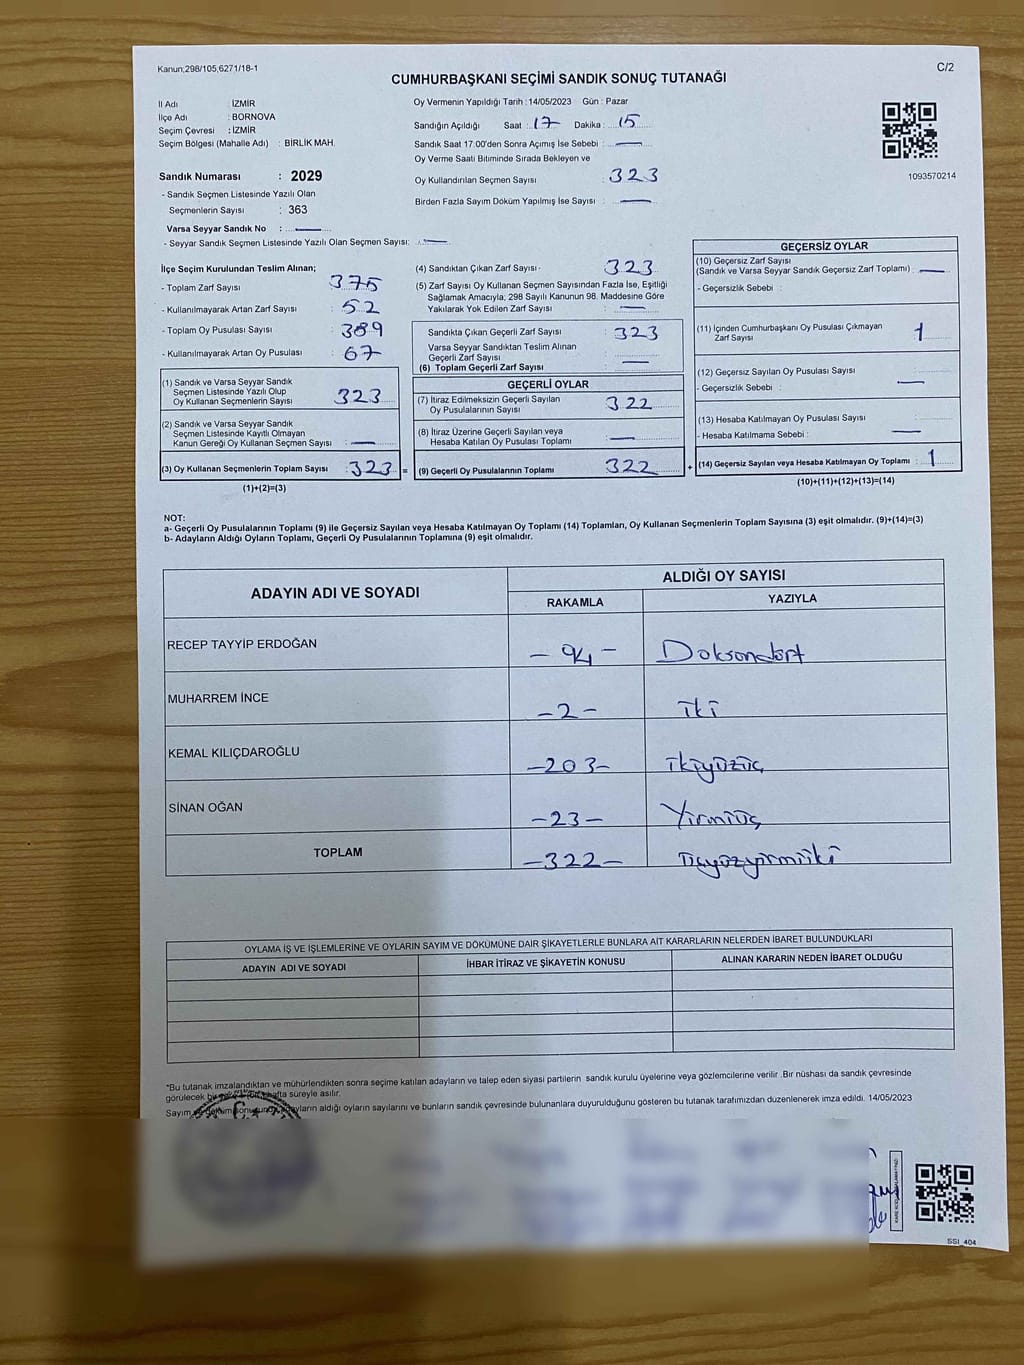 Kanun;298/105;6271/18-1
C/2
CUMHURBAŞKANI SEÇİMİ SANDIK SONUÇ TUTANAĞI
İl Adı : İZMİR
İlçe Adı : BORNOVA
Seçim Çevresi : İZMİR
Seçim Bölgesi (Mahalle Adı) : BİRLİK MAH.
Sandık Numarası : 2029
- Sandık Seçmen Listesinde Yazılı Olan
Seçmenlerin Sayısı : 363
Varsa Seyyar Sandık No :
- Seyyar Sandık Seçmen Listesinde Yazılı Olan Seçmen Sayısı:
Oy Vermenin Yapıldığı Tarih : 14/05/2023 Gün : Pazar
Sandığın Açıldığı Saat : 17 Dakika : 15
Sandık Saat 17:00'den Sonra Açımış İse Sebebi :
Oy Verme Saati Bitiminde Sırada Bekleyen ve
Oy Kullandırılan Seçmen Sayısı : 323
Birden Fazla Sayım Döküm Yapılmış İse Sayısı :
1093570214
İlçe Seçim Kurulundan Teslim Alınan;
- Toplam Zarf Sayısı : 375
- Kullanılmayarak Artan Zarf Sayısı : 52
- Toplam Oy Pusulası Sayısı : 389
- Kullanılmayarak Artan Oy Pusulası : 67
(1) Sandık ve Varsa Seyyar Sandık
Seçmen Listesinde Yazılı Olup
Oy Kullanan Seçmenlerin Sayısı : 323
(2) Sandık ve Varsa Seyyar Sandık
Seçmen Listesinde Kayıtlı Olmayan
Kanun Gereği Oy Kullanan Seçmen Sayısı :
(3) Oy Kullanan Seçmenlerin Toplam Sayısı : 323 =
(1)+(2)=(3)
(4) Sandıktan Çıkan Zarf Sayısı- 323
(5) Zarf Sayısı Oy Kullanan Seçmen Sayısından Fazla İse, Eşitliği
Sağlamak Amacıyla; 298 Sayılı Kanunun 98. Maddesine Göre
Yakılarak Yok Edilen Zarf Sayısı :
Sandıkta Çıkan Geçerli Zarf Sayısı : 323
Varsa Seyyar Sandıktan Teslim Alınan
Geçerli Zarf Sayısı :
(6) Toplam Geçerli Zarf Sayısı :
GEÇERLİ OYLAR
(7) İtiraz Edilmeksizin Geçerli Sayılan
Oy Pusulalarının Sayısı : 322
(8) İtiraz Üzerine Geçerli Sayılan veya
Hesaba Katılan Oy Pusulası Toplamı :
(9) Geçerli Oy Pusulalarının Toplamı : 322 +
GEÇERSİZ OYLAR
(10) Geçersiz Zarf Sayısı
(Sandık ve Varsa Seyyar Sandık Geçersiz Zarf Toplamı) :
- Geçersizlik Sebebi :
(11) İçinden Cumhurbaşkanı Oy Pusulası Çıkmayan
Zarf Sayısı : 1
(12) Geçersiz Sayılan Oy Pusulası Sayısı :
- Geçersizlik Sebebi :
(13) Hesaba Katılmayan Oy Pusulası Sayısı :
- Hesaba Katılmama Sebebi :
(14) Geçersiz Sayılan veya Hesaba Katılmayan Oy Toplamı : 1
(10)+(11)+(12)+(13)=(14)
NOT:
a- Geçerli Oy Pusulalarının Toplamı (9) ile Geçersiz Sayılan veya Hesaba Katılmayan Oy Toplamı (14) Toplamları, Oy Kullanan Seçmenlerin Toplam Sayısına (3) eşit olmalıdır. (9)+(14)=(3)
b- Adayların Aldığı Oyların Toplamı, Geçerli Oy Pusulalarının Toplamına (9) eşit olmalıdır.
ADAYIN ADI VE SOYADI
ALDIĞI OY SAYISI
RAKAMLA YAZIYLA
RECEP TAYYİP ERDOĞAN - 94 - Doksandört
MUHARREM İNCE -2- İki
KEMAL KILIÇDAROĞLU -203- İkiyüzüç
SİNAN OĞAN -23- Yirmiüç
TOPLAM -322- Üçyüzyirmiiki
OYLAMA İŞ VE İŞLEMLERİNE VE OYLARIN SAYIM VE DÖKÜMÜNE DAİR ŞİKAYETLERLE BUNLARA AİT KARARLARIN NELERDEN İBARET BULUNDUKLARI
ADAYIN ADI VE SOYADI İHBAR İTİRAZ VE ŞİKAYETİN KONUSU ALINAN KARARIN NEDEN İBARET OLDUĞU
*Bu tutanak imzalandıktan ve mühürlendikten sonra seçime katılan adayların ve talep eden siyasi partilerin sandık kurulu üyelerine veya gözlemcilerine verilir .Bir nüshası da sandık çevresinde
görülecek hafta süreyle asılır.
Sayım adayların aldığı oyların sayılarını ve bunların sandık çevresinde bulunanlara duyurulduğunu gösteren bu tutanak tarafımızdan düzenlenerek imza edildi. 14/05/2023
SSI_404